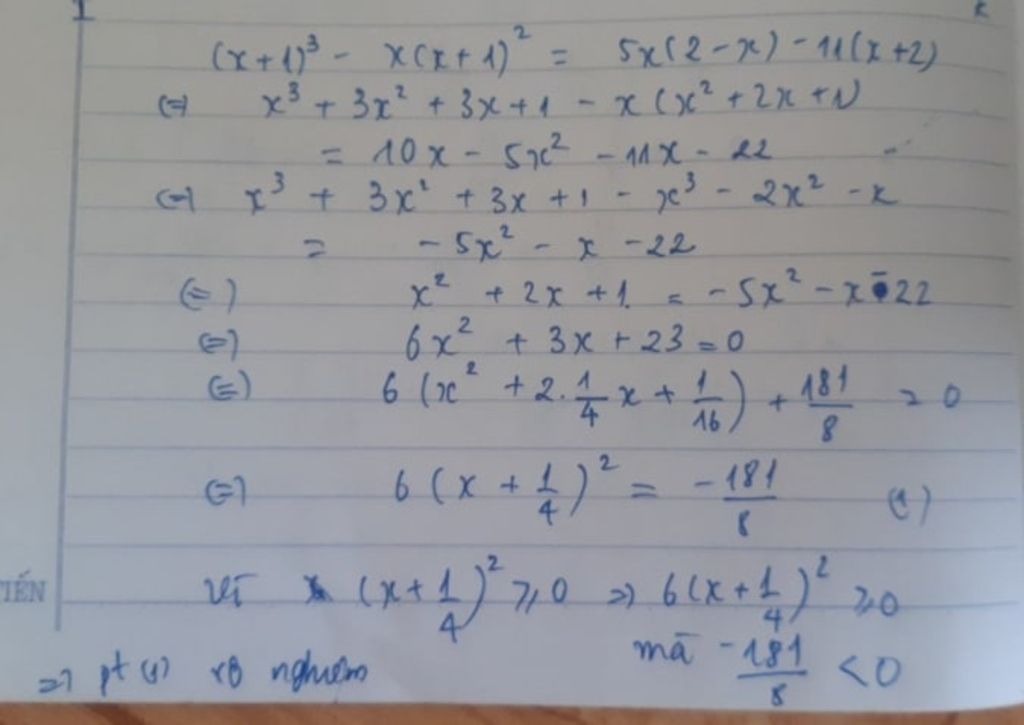 (x+1)³ - x(x+1)² = 5x(2-x) - 11(x+2)
(=) x³ + 3x² + 3x + 1 - x(x² + 2x + 1)
= 10x - 5x² - 11x - 22
(=) x³ + 3x² + 3x + 1 - x³ - 2x² - x
= - 5x² - x - 22
(=) x² + 2x + 1 = -5x² - x - 22
(=) 6x² + 3x + 23 = 0
(=) 6(x² + 2.1/4 x + 1/16) + 181/8 = 0
(=) 6(x + 1/4)² = -181/8 (1)
TIẾN
Vì (x + 1/4)² ≥ 0 => 6(x + 1/4)² ≥ 0
mà -181/8 < 0
=> pt (1) vô nghiệm